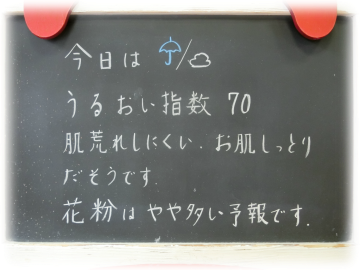 今日は ☂/☁
うるおい指数 70
肌荒れしにくい．お肌しっとり
だそうです．
花粉はやや多い予報です．